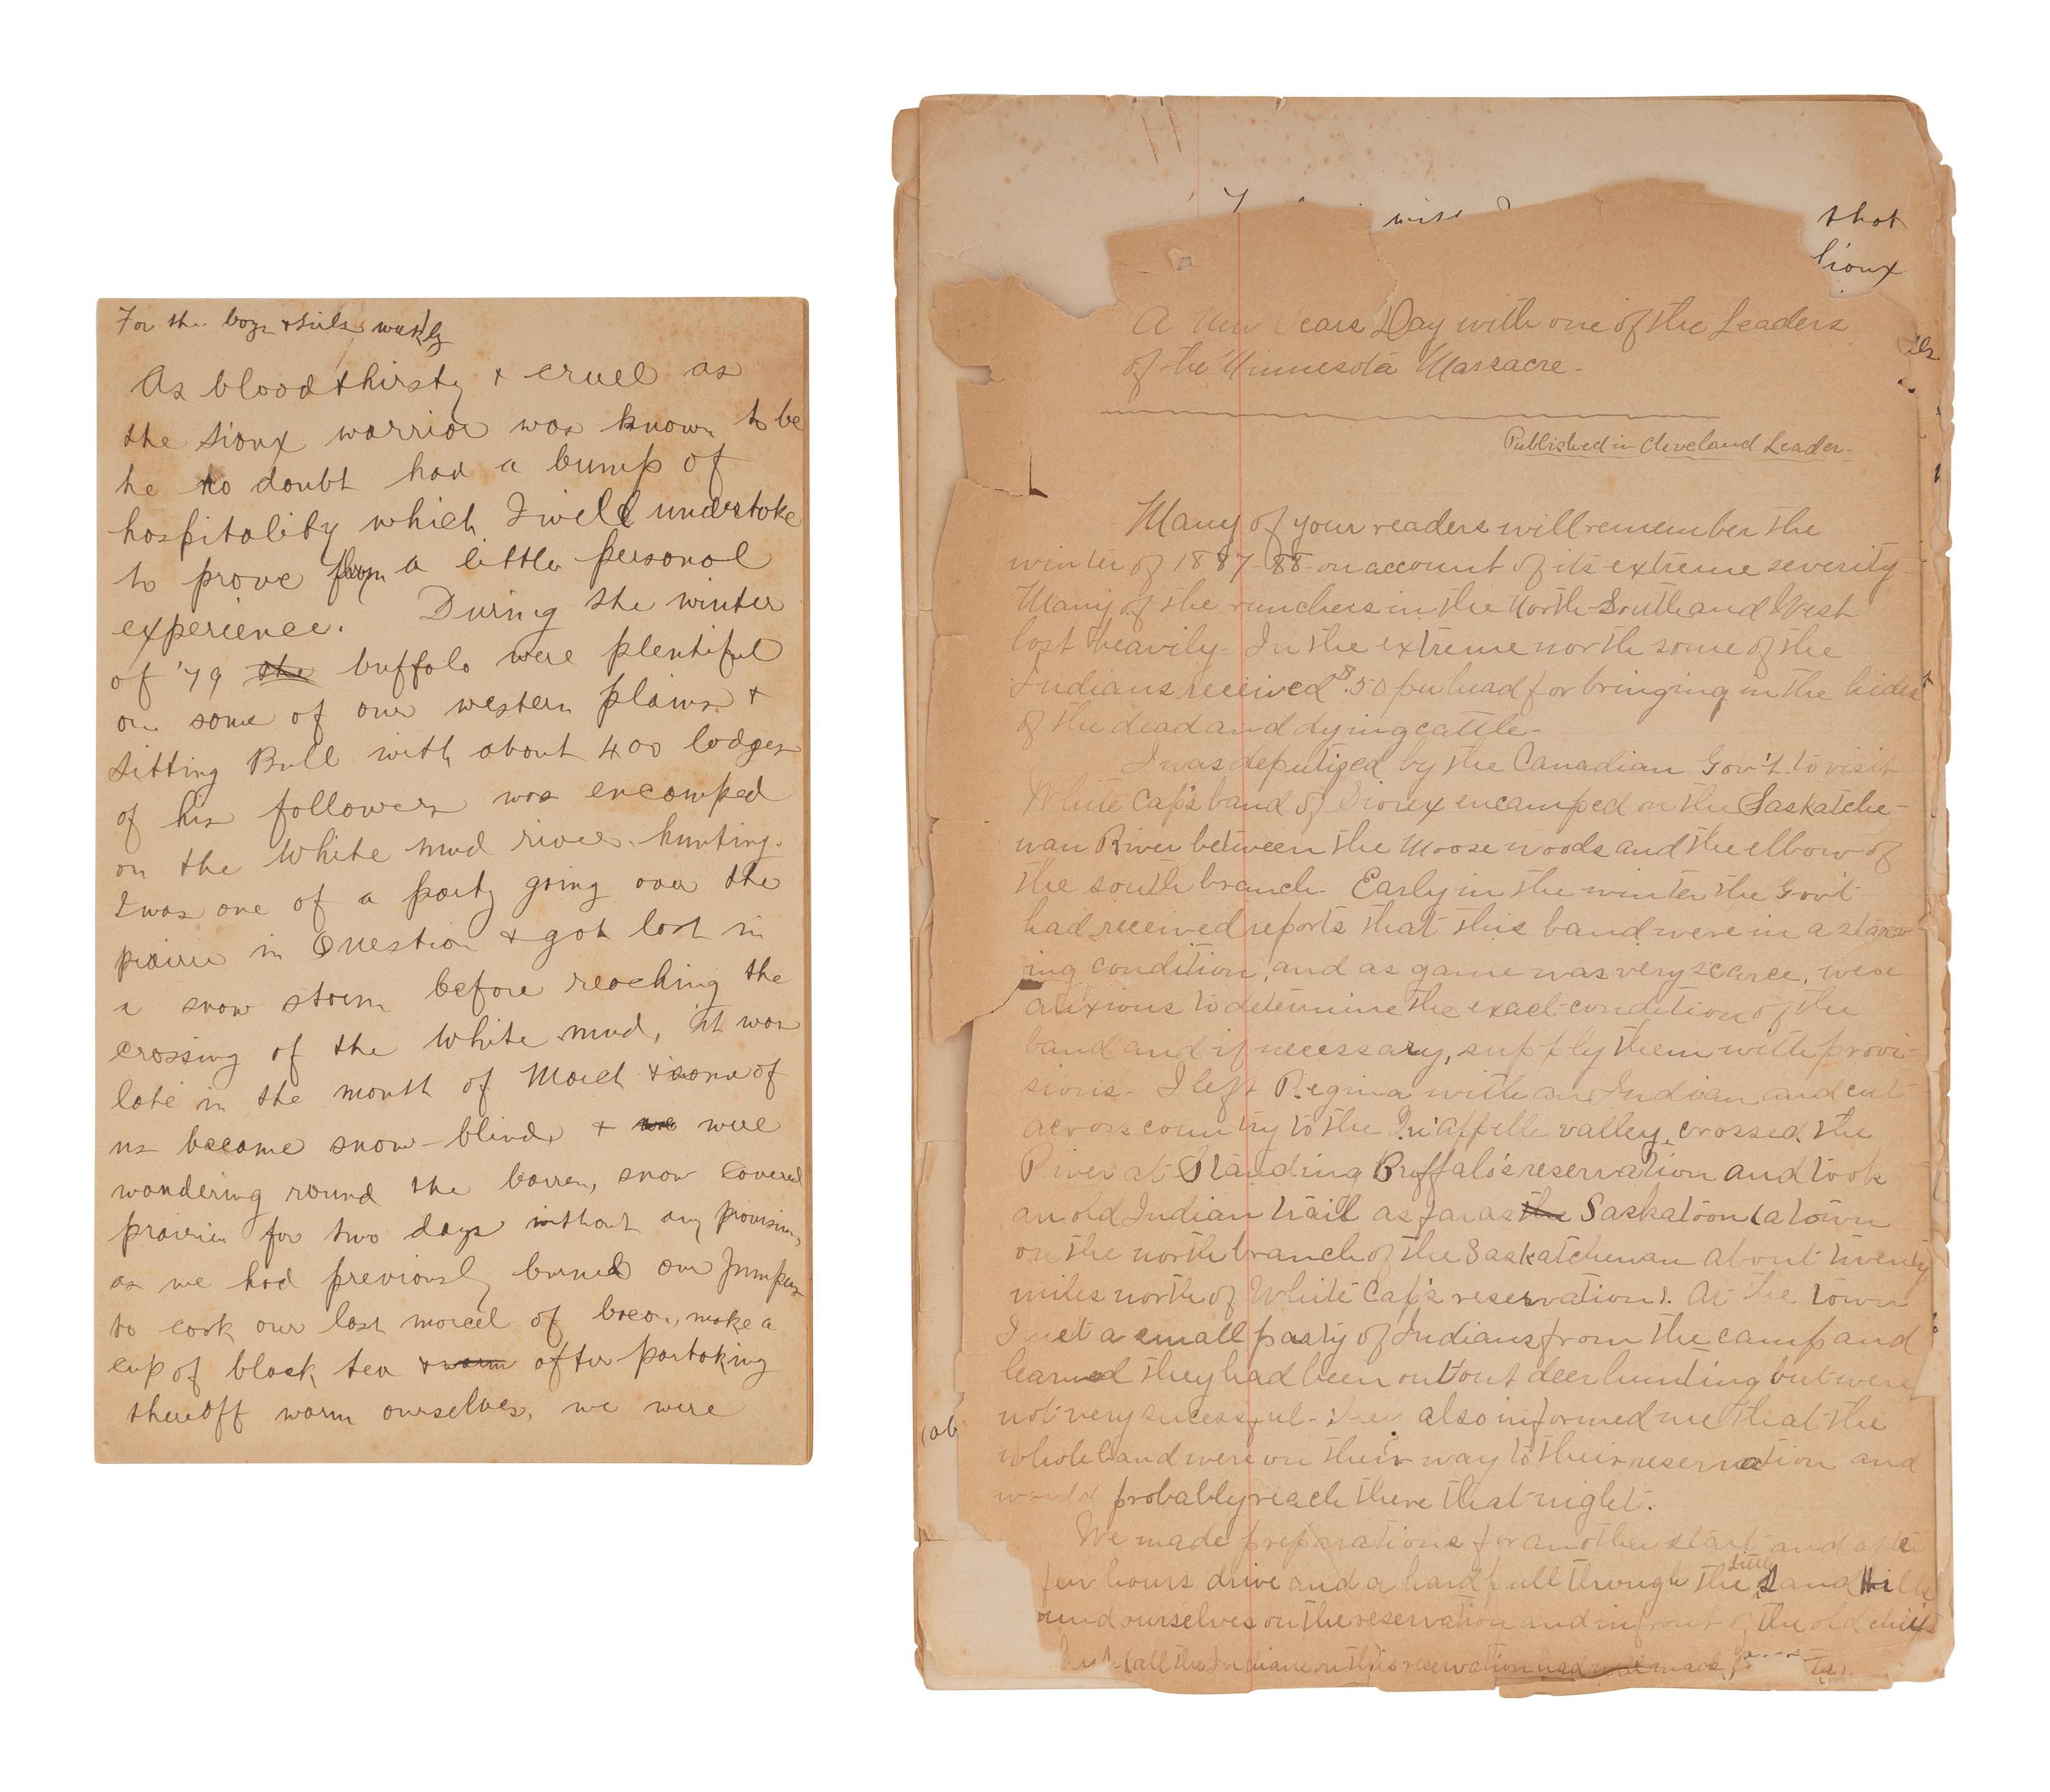 For the boys & girls weekly
As bloodthirsty & cruel as
the Sioux warrior was known to be
he no doubt had a bump of
hospitality which I will undertake
to prove from a little personal
experience. During the winter
of '79 the buffalo were plentiful
on some of our western plains &
Sitting Bull with about 400 lodges
of his followers was encamped
on the White mud river hunting.
I was one of a party going over the
prairie in Question & got lost in
a snow storm before reaching the
crossing of the White mud, it was
late in the month of March & some of
us became snow-blind & we were
wandering round the barren, snow covered
prairie for two days without any provisions,
as we had previously burned our Jumpers
to cook our last morcel of bacon, make a
cup of black tea & warm after partaking
thereoff warm ourselves, we were
with that
Sioux
A New Years Day with one of the Leaders
of the Minnesota Massacre.
Published in Cleveland Leader.
Many of your readers will remember the
winter of 1887-88 on account of its extreme severity
Many of the ranchers in the North-South and West
lost heavily. In the extreme north some of the
Indians received $.50 per head for bringing in the hides
of the dead and dying cattle.
I was deputized by the Canadian Gov't. to visit
White Cap's band of Sioux encamped on the Saskatche-
wan River between the Moose woods and the elbow of
the south branch. Early in the winter the Gov't
had received reports that this band were in a starv
ing condition, and as game was very scarce, were
anxious to determine the exact condition of the
band and if necessary, supply them with provi-
sions. I left Regina with an Indian and cut
across country to the Qu'Appelle valley, crossed the
River at Standing Buffalo's reservation and took
an old Indian trail as far as the Saskatoon (a town
on the north branch of the Saskatchewan about twenty
miles north of White Cap's reservation). At the town
I met a small party of Indians from the camp and
learned they had been out deer hunting but were
not very sucessful. They also informed me that the
whole band were on their way to their reservation and
would probably reach there that night.
We made preparations for another start and after
few hours drive and a hard pull through the Little Sand Hills
ound ourselves on the reservation and in front of the old chiefs
(all the Indians on this reservation had